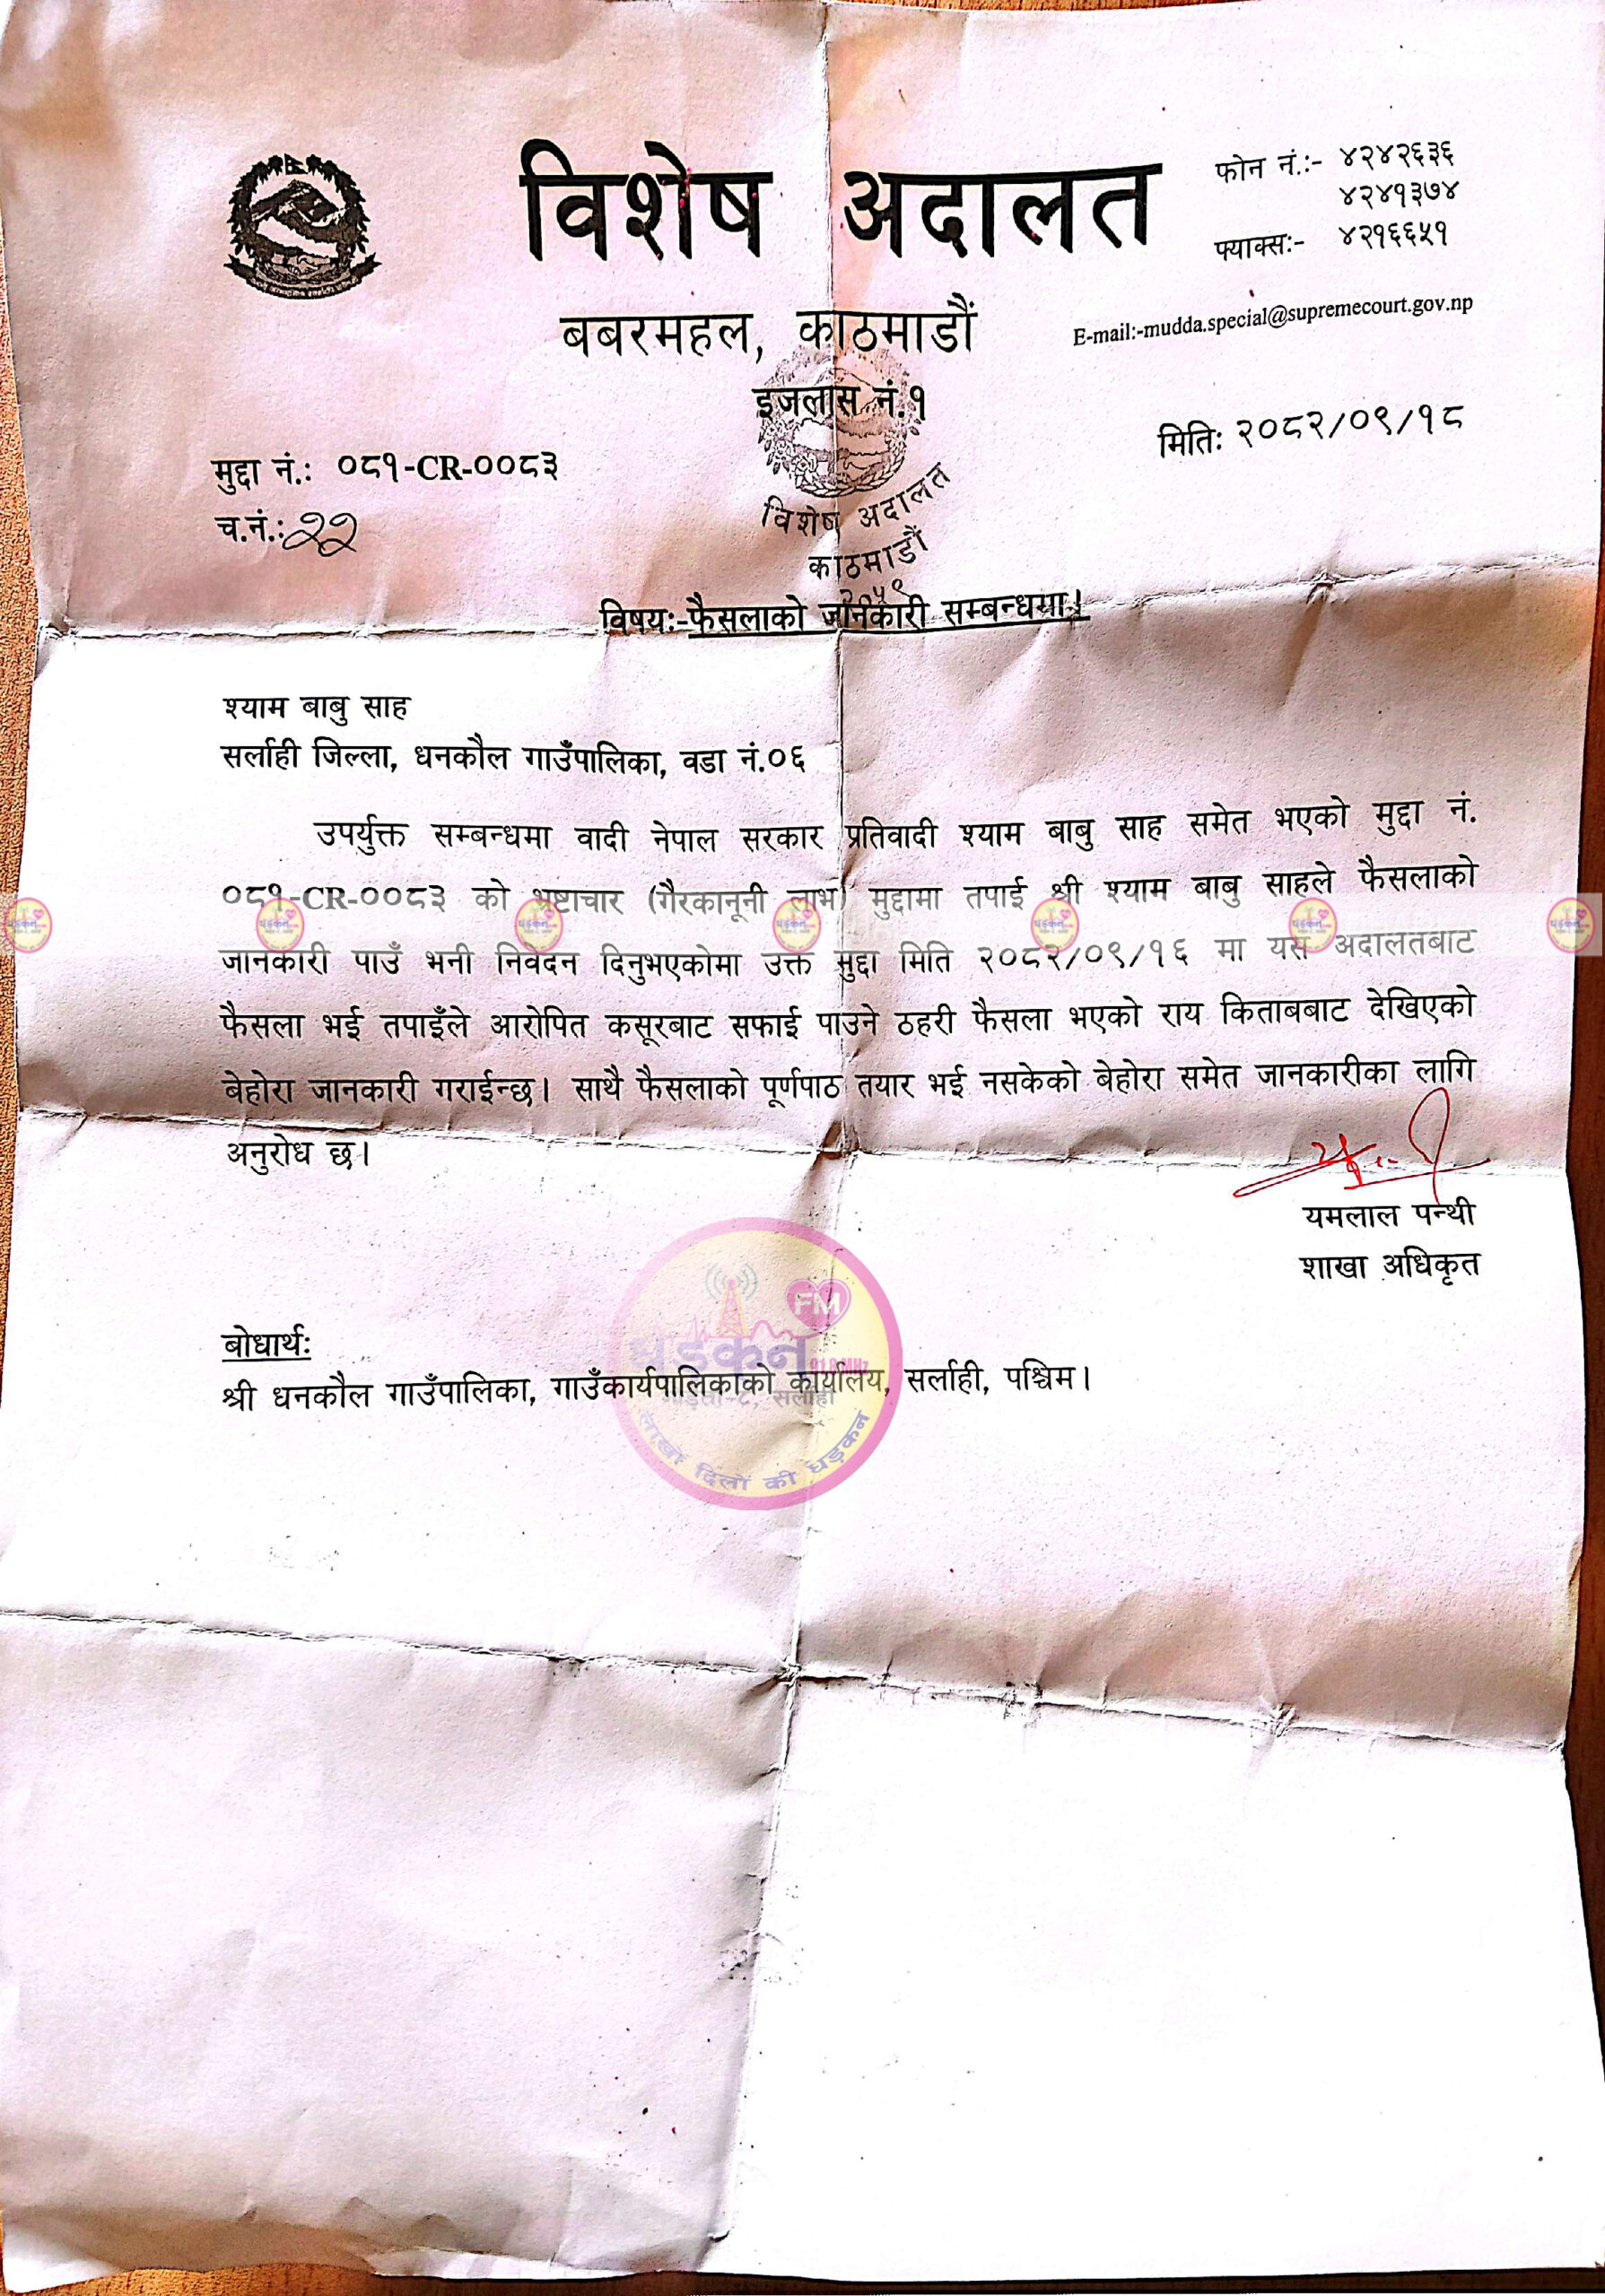 विशेष अदालत
फोन नं.:- ४२४२६३६
४२४१३७४
फ्याक्स:- ४२१६६५१
बबरमहल, काठमाडौं
E-mail:-mudda.special@supremecourt.gov.np
इजलास नं.१
मिति: २०८२/०९/१८
मुद्दा नं.: ०८१-CR-००८३
च.नं.: २२
विशेष अदालत
काठमाडौं
२०५९
विषय:-फैसलाको जानकारी सम्बन्धमा।
श्याम बाबु साह
सर्लाही जिल्ला, धनकौल गाउँपालिका, वडा नं.०६
उपर्युक्त सम्बन्धमा वादी नेपाल सरकार प्रतिवादी श्याम बाबु साह समेत भएको मुद्दा नं.
०८१-CR-००८३ को भ्रष्टाचार (गैरकानूनी लाभ) मुद्दामा तपाई श्री श्याम बाबु साहले फैसलाको
जानकारी पाउँ भनी निवेदन दिनुभएकोमा उक्त मुद्दा मिति २०८२/०९/१६ मा यस अदालतबाट
फैसला भई तपाइँले आरोपित कसूरबाट सफाई पाउने ठहरी फैसला भएको राय किताबबाट देखिएको
बेहोरा जानकारी गराईन्छ। साथै फैसलाको पूर्णपाठ तयार भई नसकेको बेहोरा समेत जानकारीका लागि
अनुरोध छ।
यमलाल पन्थी
शाखा अधिकृत
बोधार्थ:
श्री धनकौल गाउँपालिका, गाउँकार्यपालिकाको कार्यालय, सर्लाही, पश्चिम।
FM
धड़कन
91.8 MHz
लाखो दिलो की धड़कन